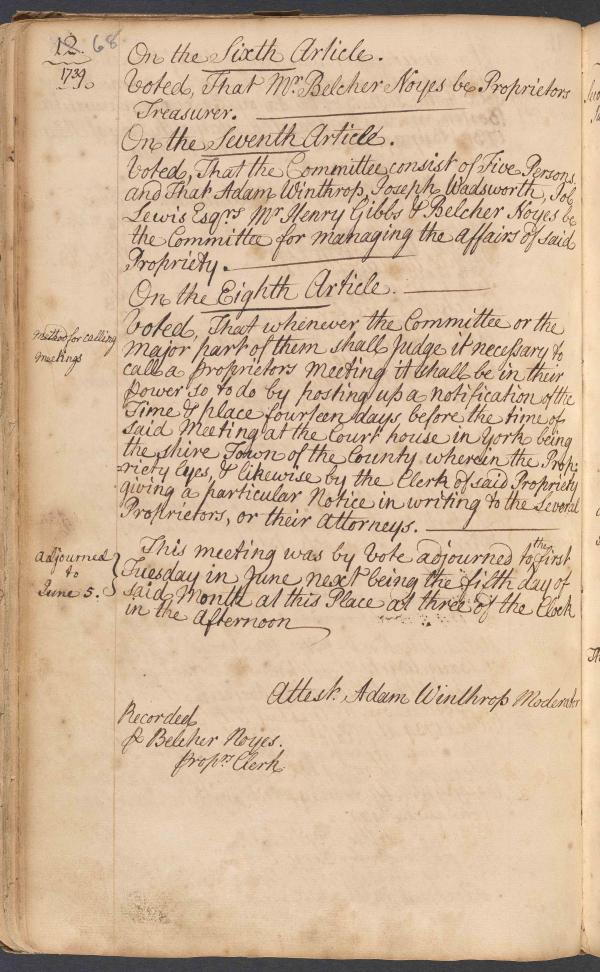 12. 68
1739
On the Sixth Article.
Voted, That Mr. Belcher Noyes be Proprietors
Treasurer.
On the Seventh Article.
Voted, That the Committee consist of Five Persons,
and That Adam Winthrop, Joseph Wadsworth, Job
Lewis Esqrs. Mr Henry Gibbs & Belcher Noyes be
the Committee for managing the affairs of said
Propriety.
On the Eighth Article.
Method for calling
meetings
Voted, That whenever the Committee or the
major part of them shall Judge it necessary to
call a proprietors meeting it shall be in their
power so to do by posting up a notification of the
Time & place fourteen days before the time of
said Meeting at the Court house in York being
the shire Town of the County wherein the Prop:
riety lyes, & likewise by the Clerk of said Propriety
giving a particular Notice in writing to the several
Proprietors, or their Attorneys.
Adjourned
to
June 5.
This meeting was by Vote adjourned to the first
Tuesday in June next being the fifth day of
said Month at this Place at three of the Clock
in the afternoon
Attest. Adam Winthrop Moderator
Recorded
P Belcher Noyes.
Proprs Clerk